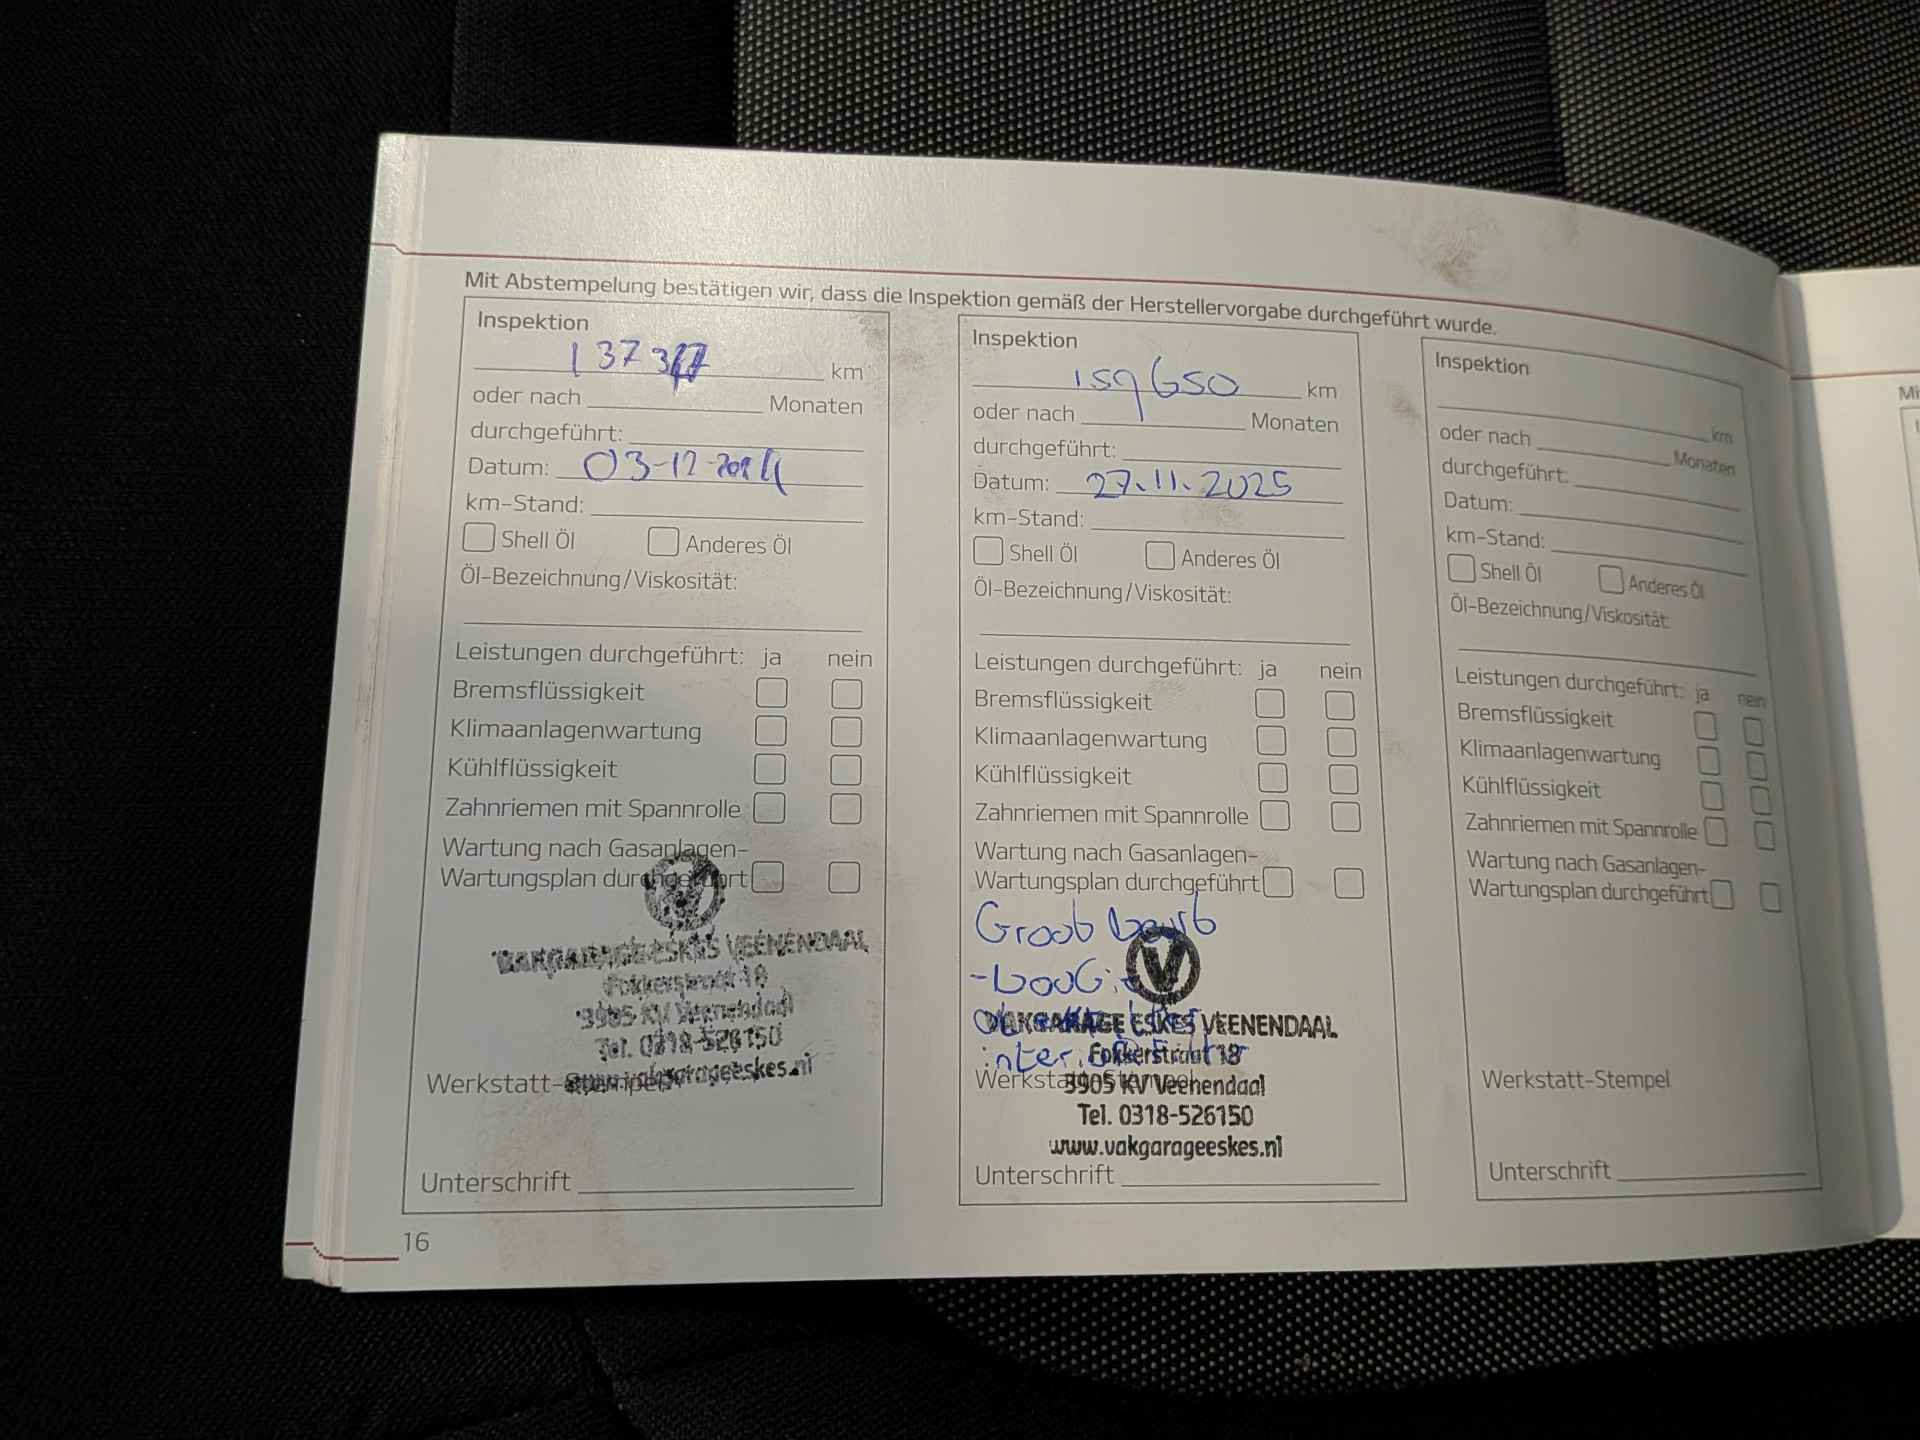 Mit Abstempelung bestätigen wir, dass die Inspektion gemäß der Herstellervorgabe durchgeführt wurde.
Inspektion
km
oder nach Monaten
durchgeführt:
Datum: 03-12-2024
km-Stand:
Shell Öl Anderes Öl
Öl-Bezeichnung/Viskosität:
Leistungen durchgeführt: ja nein
Bremsflüssigkeit
Klimaanlagenwartung
Kühlflüssigkeit
Zahnriemen mit Spannrolle
Wartung nach Gasanlagen-
Wartungsplan durchgeführt
VAKGARAGE ESKES VEENENDAAL
Fokkerstraat 18
3905 KV Veenendaal
Tel. 0318-526150
www.vakgarageeskes.nl
Werkstatt-Stempel
Unterschrift
16
Inspektion
159650 km
oder nach Monaten
durchgeführt:
Datum: 27.11.2025
km-Stand:
Shell Öl Anderes Öl
Öl-Bezeichnung/Viskosität:
Leistungen durchgeführt: ja nein
Bremsflüssigkeit
Klimaanlagenwartung
Kühlflüssigkeit
Zahnriemen mit Spannrolle
Wartung nach Gasanlagen-
Wartungsplan durchgeführt
Groot beurt
V
VAKGARAGE ESKES VEENENDAAL
Fokkerstraat 18
3905 KV Veenendaal
Tel. 0318-526150
www.vakgarageeskes.nl
Werkstatt-Stempel
Unterschrift
Inspektion
km
oder nach Monaten
durchgeführt:
Datum:
km-Stand:
Shell Öl Anderes Öl
Öl-Bezeichnung/Viskosität:
Leistungen durchgeführt: ja nein
Bremsflüssigkeit
Klimaanlagenwartung
Kühlflüssigkeit
Zahnriemen mit Spannrolle
Wartung nach Gasanlagen-
Wartungsplan durchgeführt
Werkstatt-Stempel
Unterschrift